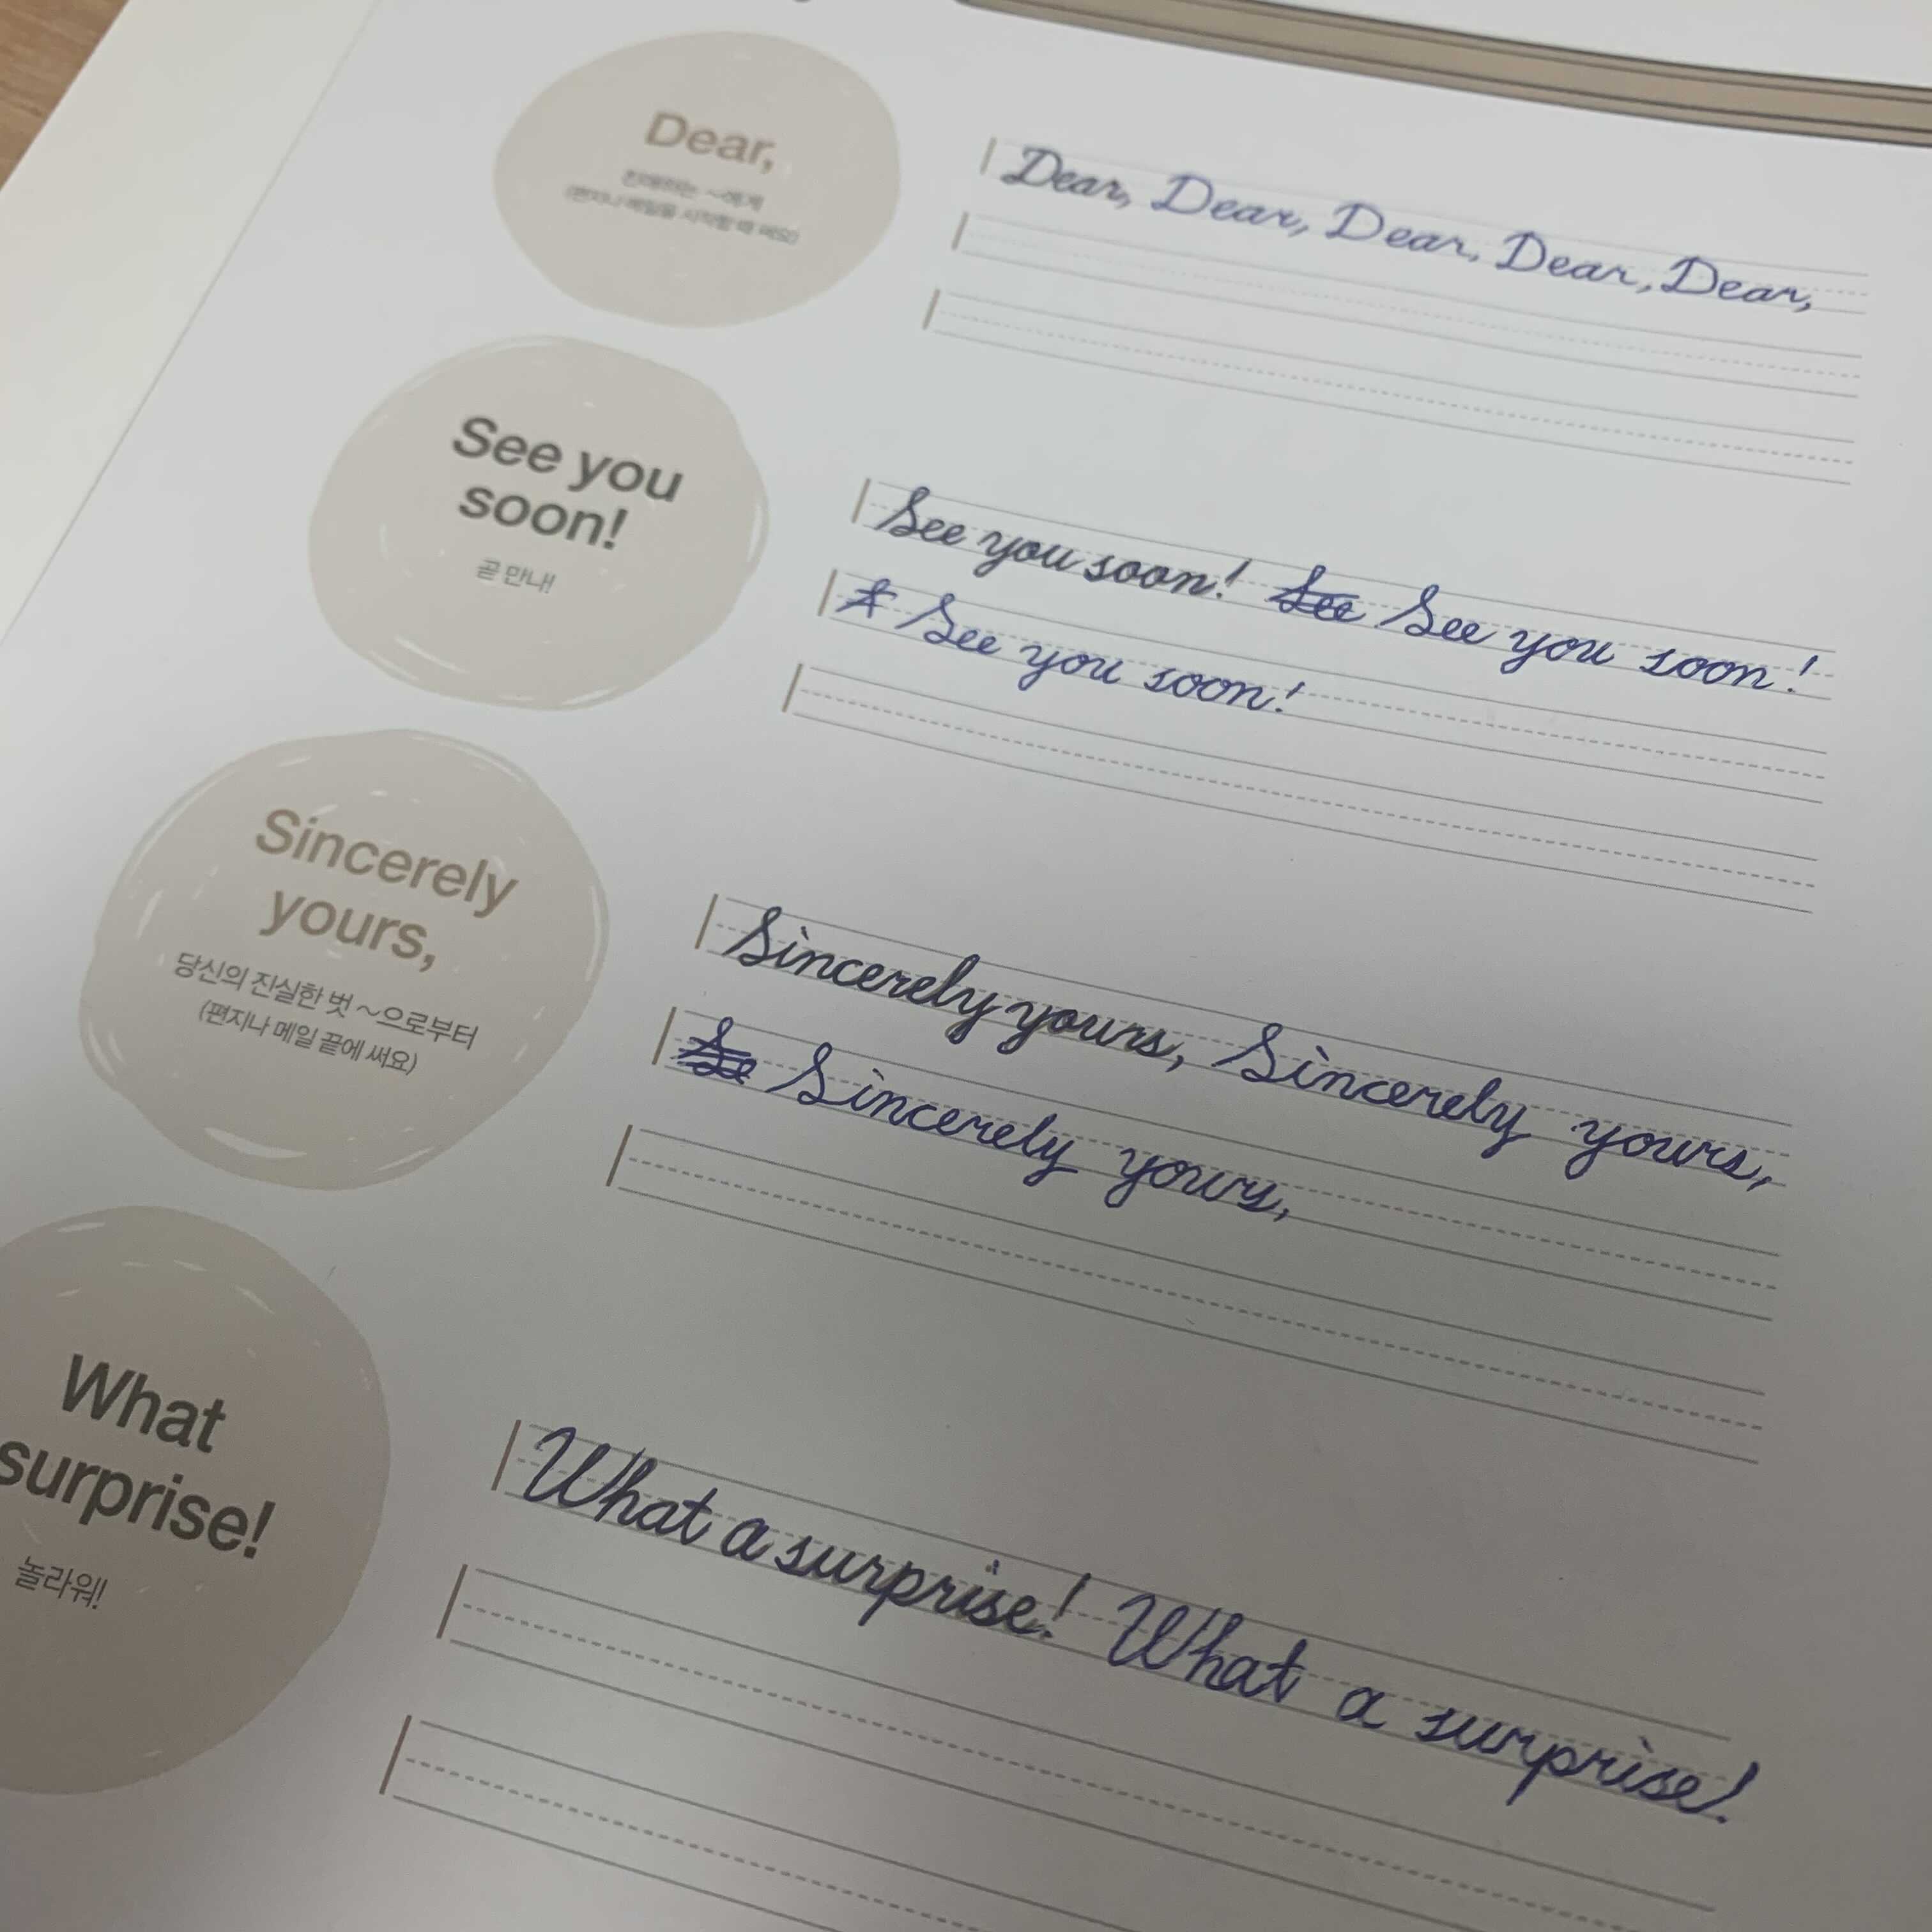 Dear,
친애하는 ~에게
(편지나 메일을 시작할 때 써요)
Dear, Dear, Dear, Dear, Dear,
See you
soon!
곧 만나!
See you soon! See See you soon!
See you soon!
Sincerely
yours,
당신의 진실한 벗 ~으로부터
(편지나 메일 끝에 써요)
Sincerely yours, Sincerely yours,
Sincerely yours,
What
surprise!
놀라워!
What a surprise! What a surprise!